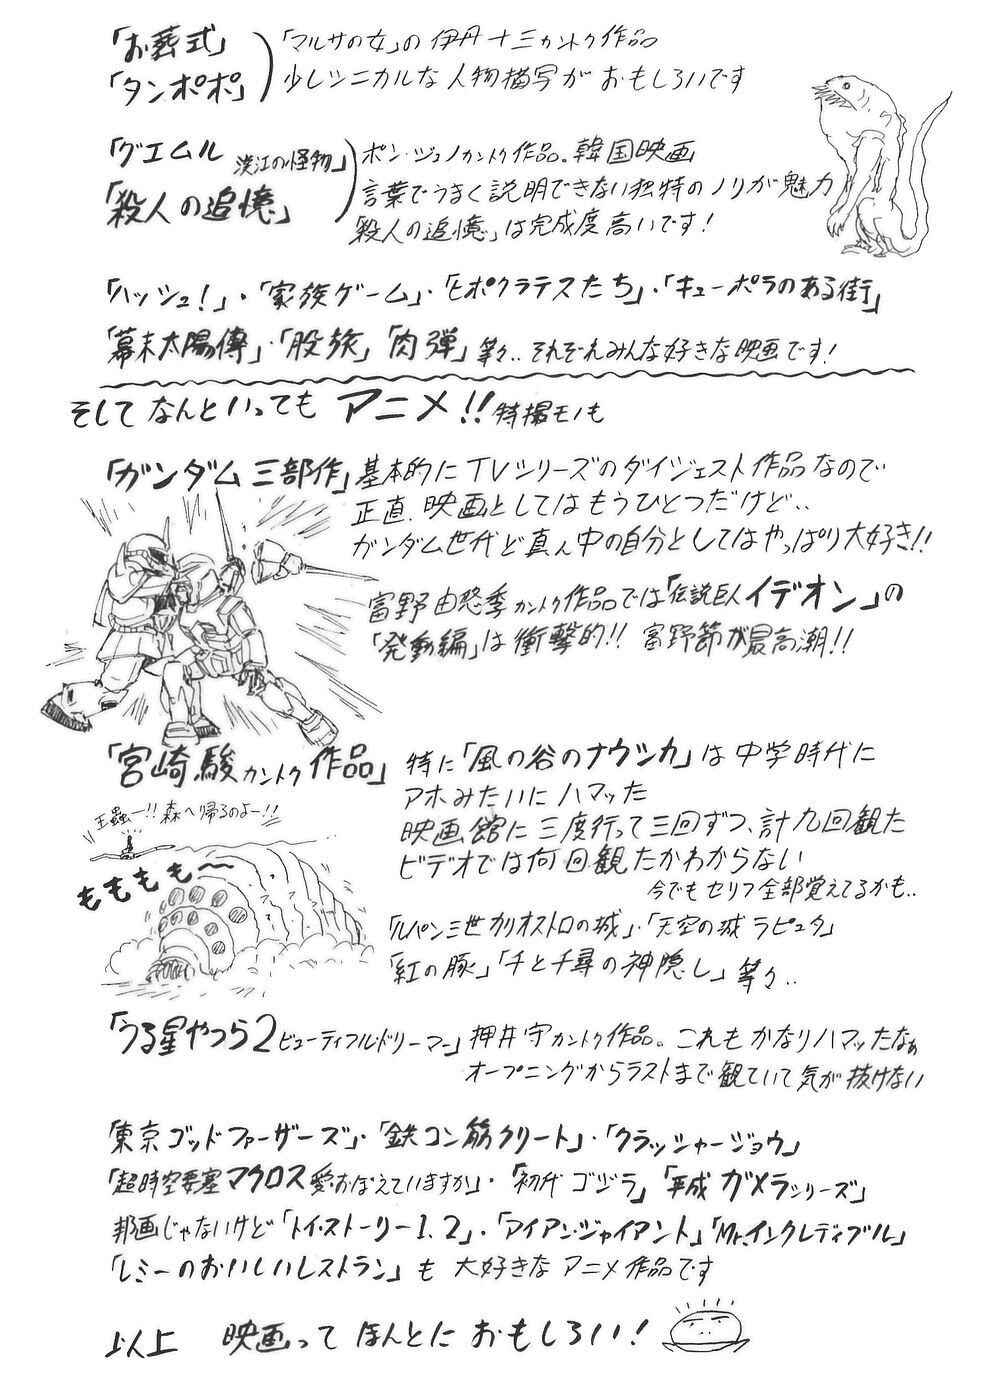 「お葬式」
「タンポポ」
「マルサの女」の伊丹十三カントク作品
少しシニカルな人物描写がおもしろいです
「グエムル 漢江の怪物」
「殺人の追憶」
ポン・ジュノカントク作品。韓国映画
言葉でうまく説明できない独特のノリが魅力
「殺人の追憶」は完成度高いです!
「ハッシュ!」・「家族ゲーム」・「ヒポクラテスたち」・「キューポラのある街」
「幕末太陽傳」・「股旅」「肉弾」等々..それぞれみんな好きな映画です!
そしてなんといっても アニメ!!特撮モノも
「ガンダム三部作」基本的にTVシリーズのダイジェスト作品なので
正直、映画としてはもうひとつだけど..
ガンダム世代ど真ん中の自分としてはやっぱり大好き!!
富野由悠季カントク作品では「伝説巨人イデオン」の
「発動編」は衝撃的!! 富野節が最高潮!!
「宮崎駿カントク作品」特に「風の谷のナウシカ」は中学時代に
アホみたいにハマッた
映画館に三度行って三回ずつ、計九回観た
ビデオでは何回観たかわからない
今でもセリフ全部覚えてるかも..
王蟲ー!!森へ帰るのよー!!
もももも〜
「ルパン三世カリオストロの城」・「天空の城ラピュタ」
「紅の豚」「千と千尋の神隠し」等々..
「うる星やつら2ビューティフルドリーマー」押井守カントク作品。これもかなりハマッたなぁ
オープニングからラストまで観ていて気が抜けない
「東京ゴッドファーザーズ」・「鉄コン筋クリート」・「クラッシャージョウ」
「超時空要塞マクロス愛・おぼえていますか」・「初代ゴジラ」「平成ガメラシリーズ」
邦画じゃないけど「トイ・ストーリー1、2」・「アイアン・ジャイアント」「Mr.インクレディブル」
「レミーのおいしいレストラン」も 大好きなアニメ作品です
以上 映画ってほんとにおもしろい!